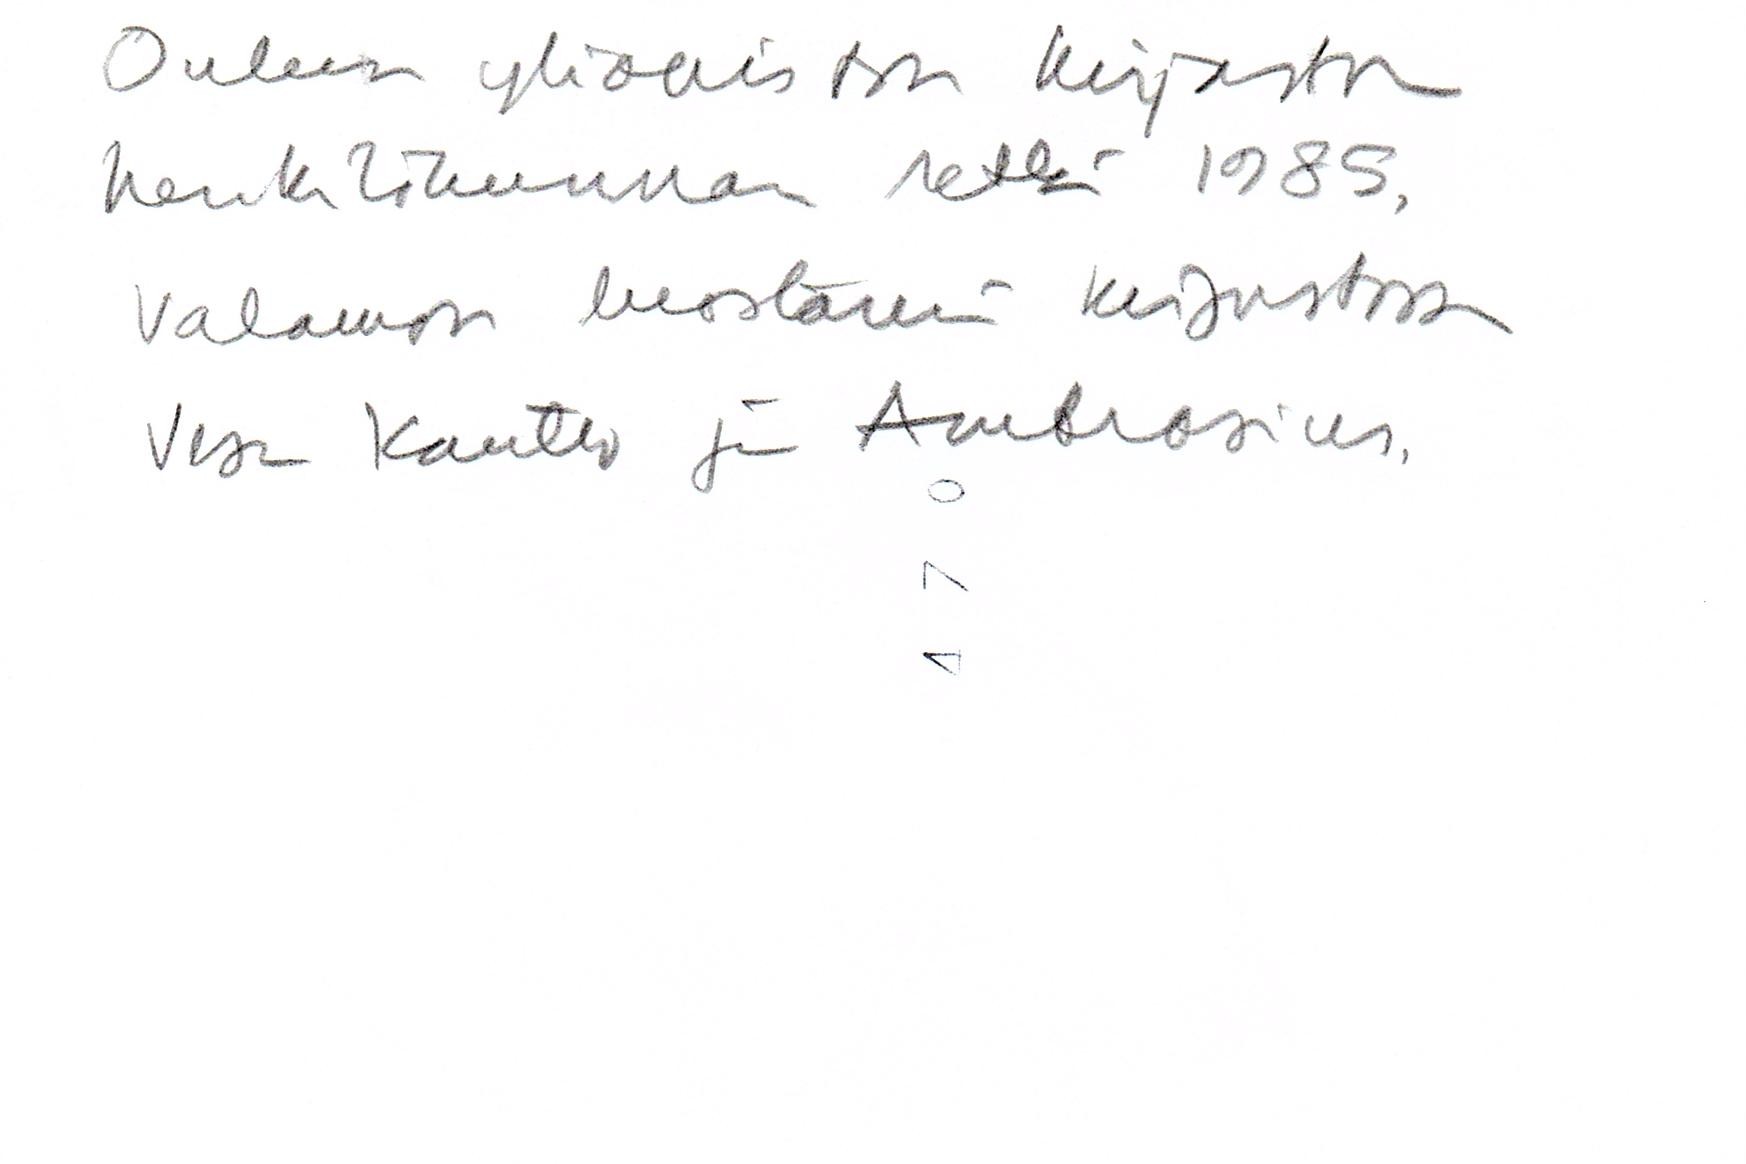 Oulun yliopiston kirjaston
henkilökunnan retki 1985,
Valamon luostarin kirjastossa
Vesa Kautto ja Ambrosius.
470